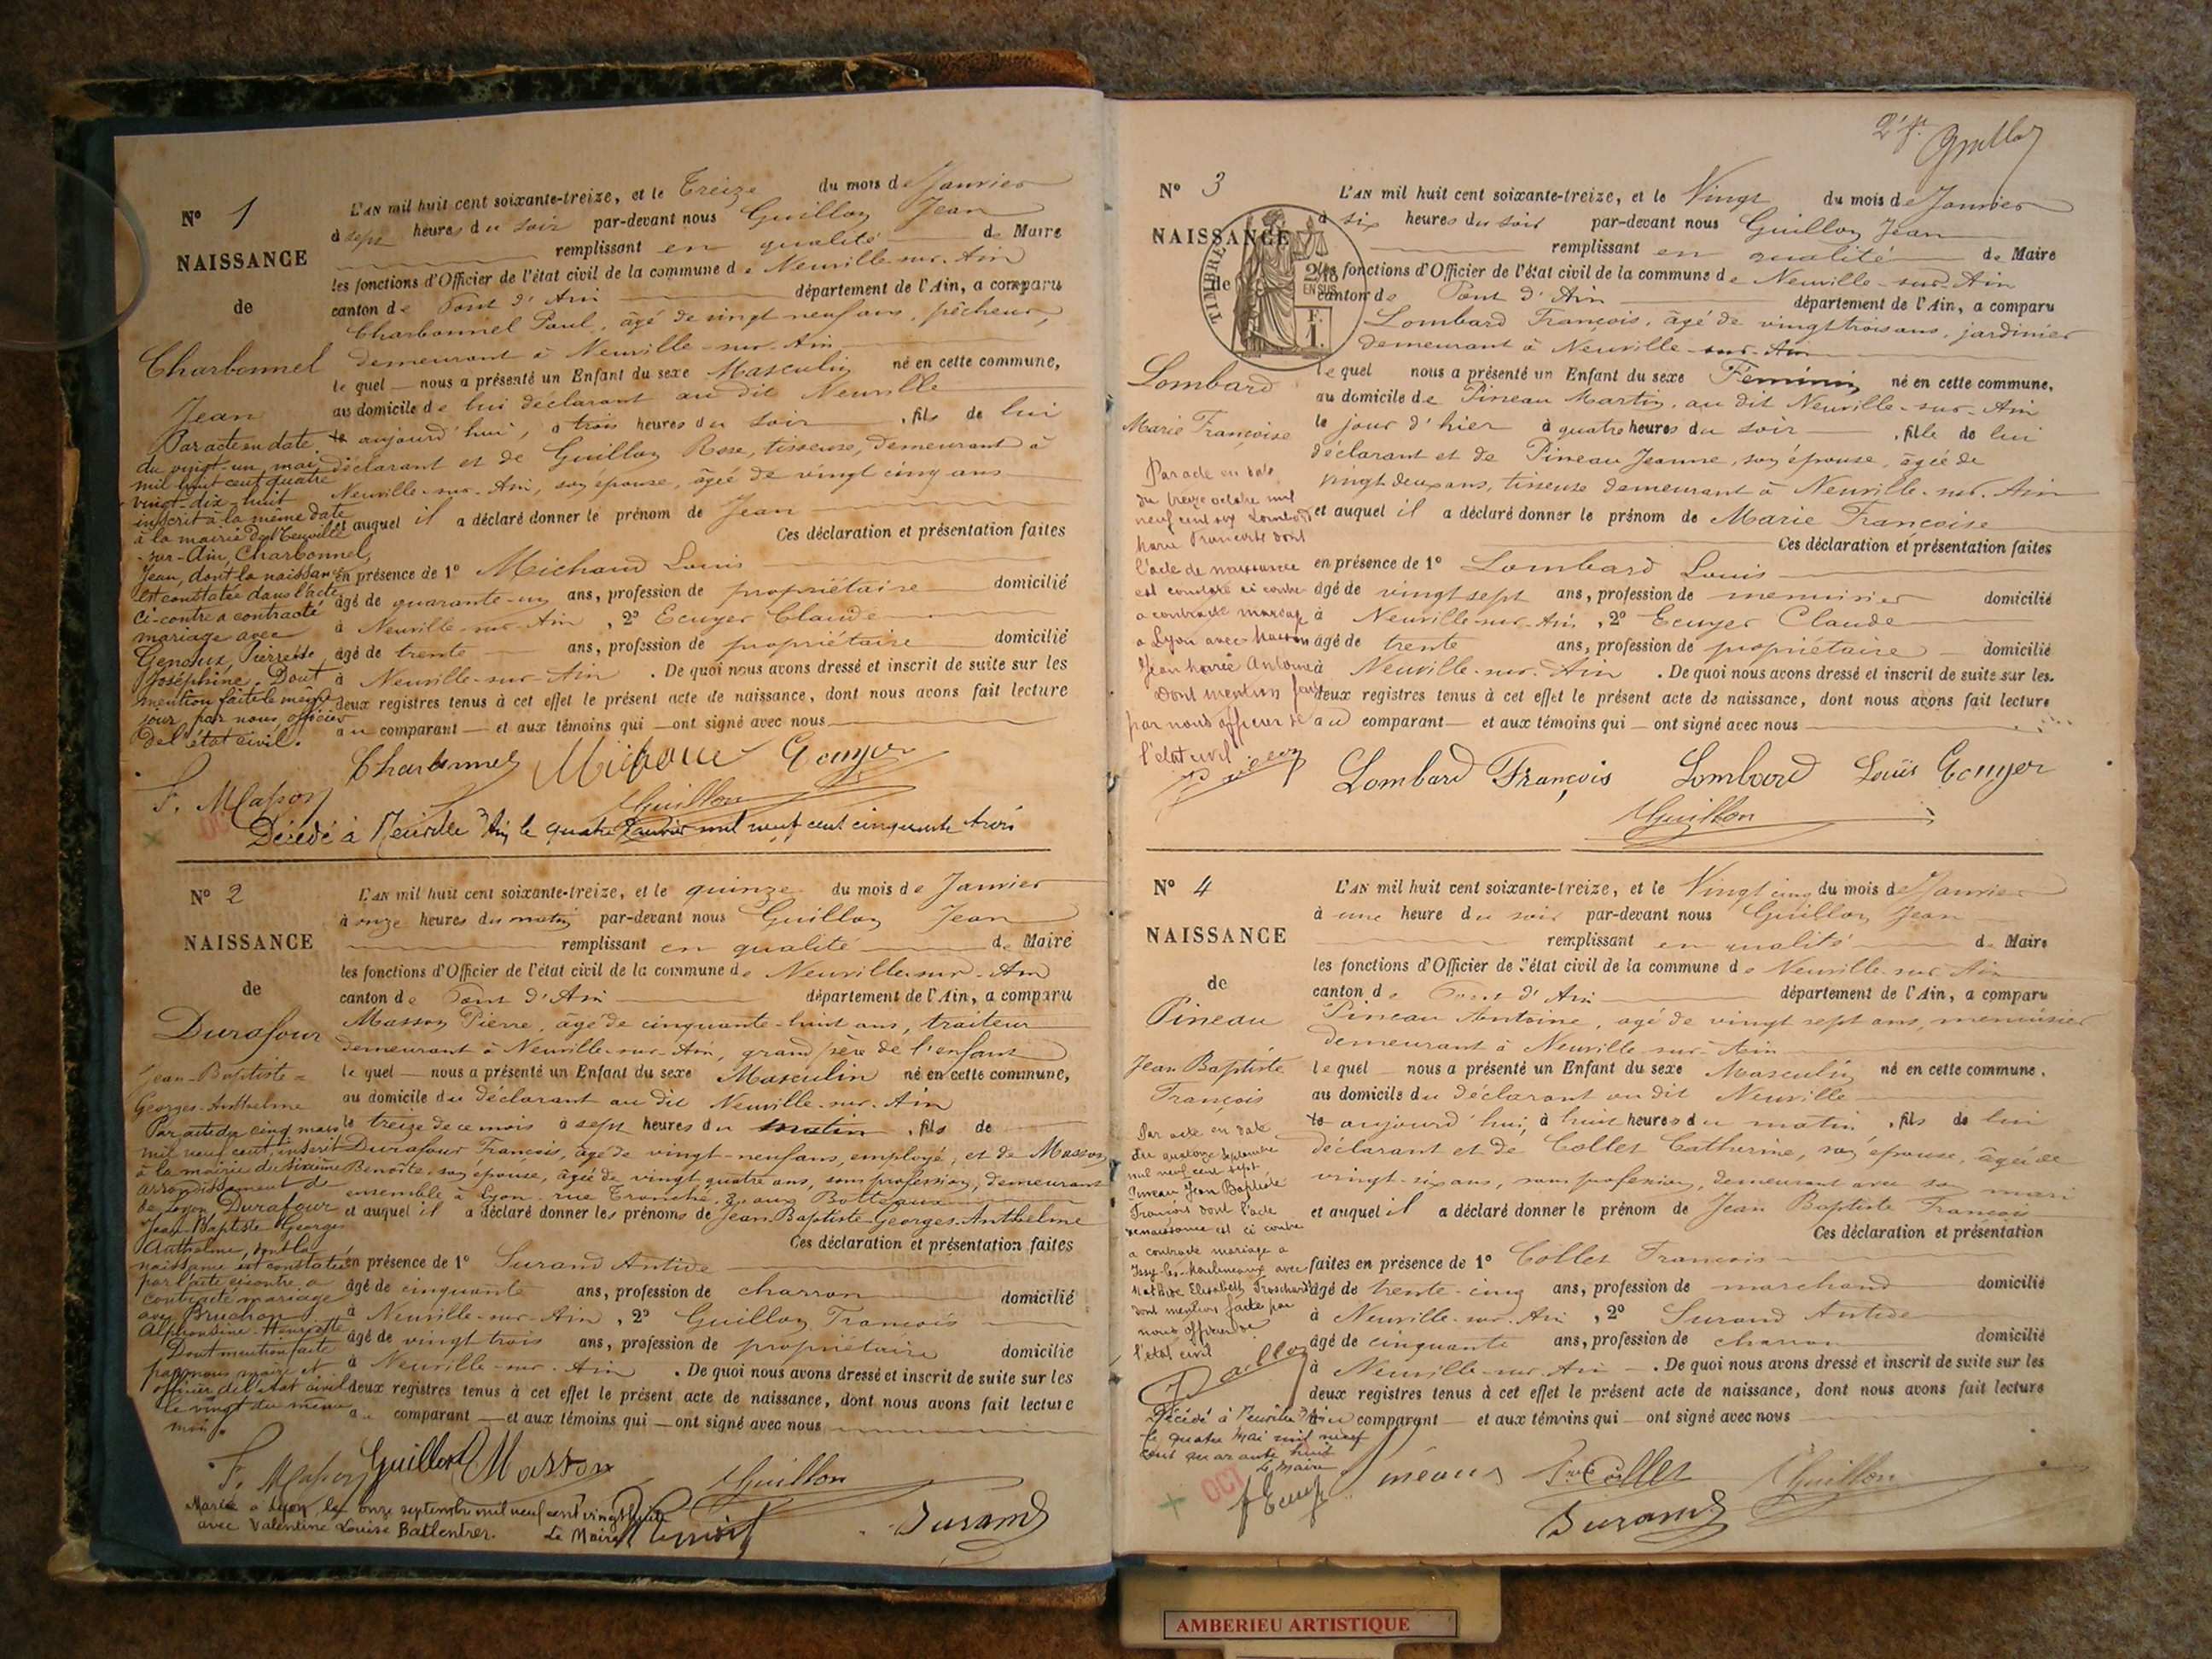 N° 1
NAISSANCE
de
Charbonnel
Jean
Par acte en date
du vingt-un mai
mil huit cent quatre
vingt-dix-huit
inscrit à la même date
à la mairie de Neuville
-sur-Ain, Charbonnel
Jean, dont la naissance
est constatée dans l'acte
ci-contre a contracté
mariage avec
Genoux Pierrette
Joséphine. Dont
mention faite le même
jour par nous, officier
de l'état civil.
L'AN mil huit cent soixante-treize, et le Treize du mois de Janvier
à sept heures du soir par-devant nous Guillon Jean
remplissant en qualité de Maire
les fonctions d'Officier de l'état civil de la commune de Neuville-sur-Ain
canton de Pont d'Ain département de l'Ain, a comparu
Charbonnel Paul, âgé de vingt neuf ans, pêcheur,
demeurant à Neuville-sur-Ain
le quel nous a présenté un Enfant du sexe Masculin né en cette commune,
au domicile de lui déclarant au dit Neuville
le aujourd'hui, à trois heures du soir, fils de lui
déclarant et de Guillon Rose, tisseuse, demeurant à
Neuville-sur-Ain, son épouse, âgée de vingt cinq ans
et auquel il a déclaré donner le prénom de Jean
Ces déclaration et présentation faites
en présence de 1° Michaud Louis
âgé de quarante-un ans, profession de propriétaire domicilié
à Neuville-sur-Ain, 2° Ecuyer Claude
âgé de trente ans, profession de propriétaire domicilié
à Neuville-sur-Ain. De quoi nous avons dressé et inscrit de suite sur les
deux registres tenus à cet effet le présent acte de naissance, dont nous avons fait lecture
au comparant et aux témoins qui ont signé avec nous
Charbonnel Michaud Ecuyer
Guillon
Décédé à Neuville d'Ain le quatre Janvier mil neuf cent cinquante trois
N° 2
NAISSANCE
de
Durafour
Jean-Baptiste
Georges-Anthelme
Par acte du cinq mars
mil neuf cent, inscrit
à la mairie du sixième
arrondissement de
de Lyon, Durafour
Jean-Baptiste Georges
Anthelme, dont la
naissance est constatée
par l'acte ci-contre a
contracté mariage
avec Bruchon
Alphonsine Henriette
Dont mention faite
par nous maire et
officier de l'état civil
le vingt du même
mois.
L'AN mil huit cent soixante-treize, et le quinze du mois de Janvier
à onze heures du matin par-devant nous Guillon Jean
remplissant en qualité de Maire
les fonctions d'Officier de l'état civil de la commune de Neuville-sur-Ain
canton de Pont d'Ain département de l'Ain, a comparu
Masson Pierre, âgé de cinquante-huit ans, traiteur
demeurant à Neuville-sur-Ain, grand père de l'enfant
le quel nous a présenté un Enfant du sexe Masculin né en cette commune,
au domicile du déclarant au dit Neuville-sur-Ain
le treize de ce mois à sept heures du matin, fils de
Durafour François, âgé de vingt-neuf ans, employé, et de Masson
Benoîte, son épouse, âgée de vingt quatre ans, sans profession, demeurant
ensemble à Lyon rue Tronchet, 3, aux Brotteaux
et auquel il a déclaré donner les prénoms de Jean-Baptiste-Georges-Anthelme
Ces déclaration et présentation faites
en présence de 1° Durand Antide
âgé de cinquante ans, profession de charron domicilié
à Neuville-sur-Ain, 2° Guillon François
âgé de vingt trois ans, profession de propriétaire domicilié
à Neuville-sur-Ain. De quoi nous avons dressé et inscrit de suite sur les
deux registres tenus à cet effet le présent acte de naissance, dont nous avons fait lecture
au comparant et aux témoins qui ont signé avec nous
Guillon Masson Guillon
Durand
Marié à Lyon, le onze septembre mil neuf cent vingt huit
avec Valentine Louise
Le Maire
N° 3
NAISSANCE
de
TIMBRE
2/10
EN SUS
F.
1.
Lombard
Marie Françoise
Par acte en date
du treize octobre mil
neuf cent six Lombard
Marie Françoise dont
l'acte de naissance
est constaté ci contre
a contracté mariage
à Lyon avec Masson
Jean Marie Antoine
Dont mention faite
par nous officier de
l'état civil
L'AN mil huit cent soixante-treize, et le Vingt du mois de Janvier
à six heures du soir par-devant nous Guillon Jean
remplissant en qualité de Maire
les fonctions d'Officier de l'état civil de la commune de Neuville-sur-Ain
canton de Pont d'Ain département de l'Ain, a comparu
Lombard François, âgé de vingt trois ans, jardinier
demeurant à Neuville-sur-Ain
le quel nous a présenté un Enfant du sexe Féminin né en cette commune,
au domicile de Pineau Martin, au dit Neuville-sur-Ain
le jour d'hier à quatre heures du soir, fille de lui
déclarant et de Pineau Jeanne, son épouse, âgée de
vingt deux ans, tisseuse demeurant à Neuville-sur-Ain
et auquel il a déclaré donner le prénom de Marie Françoise
Ces déclaration et présentation faites
en présence de 1° Lombard Louis
âgé de vingt sept ans, profession de menuisier domicilié
à Neuville-sur-Ain, 2° Ecuyer Claude
âgé de trente ans, profession de propriétaire domicilié
à Neuville-sur-Ain. De quoi nous avons dressé et inscrit de suite sur les
deux registres tenus à cet effet le présent acte de naissance, dont nous avons fait lecture
au comparant et aux témoins qui ont signé avec nous
Lombard François Lombard Louis Ecuyer
Guillon
N° 4
NAISSANCE
de
Pineau
Jean Baptiste
François
Par acte en date
du quatorze Septembre
mil neuf cent sept
Pineau Jean Baptiste
François dont l'acte
de naissance est ci contre
a contracté mariage à
Issy-les-Moulineaux avec
Elisabeth
dont mention faite par
nous officier de
l'état civil
Décédé à Neuville d'Ain
le quatre mai mil neuf
cent quarante huit
Le maire
L'AN mil huit cent soixante-treize, et le Vingt cinq du mois de Janvier
à une heure du soir par-devant nous Guillon Jean
remplissant en qualité de Maire
les fonctions d'Officier de l'état civil de la commune de Neuville-sur-Ain
canton de Pont d'Ain département de l'Ain, a comparu
Pineau Antoine, âgé de vingt sept ans, menuisier
demeurant à Neuville-sur-Ain
le quel nous a présenté un Enfant du sexe Masculin né en cette commune.
au domicile du déclarant au dit Neuville
le aujourd'hui, à huit heures du matin, fils de lui
déclarant et de Collet Catherine, son épouse, âgée de
vingt-six ans, sans profession, demeurant avec son mari
et auquel il a déclaré donner le prénom de Jean Baptiste François
Ces déclaration et présentation
faites en présence de 1° Collet François
âgé de trente-cinq ans, profession de marchand domicilié
à Neuville-sur-Ain, 2° Durand Antide
âgé de cinquante ans, profession de charron domicilié
à Neuville-sur-Ain. De quoi nous avons dressé et inscrit de suite sur les
deux registres tenus à cet effet le présent acte de naissance, dont nous avons fait lecture
au comparant et aux témoins qui ont signé avec nous
Pineau Collet Guillon
Durand
AMBERIEU ARTISTIQUE